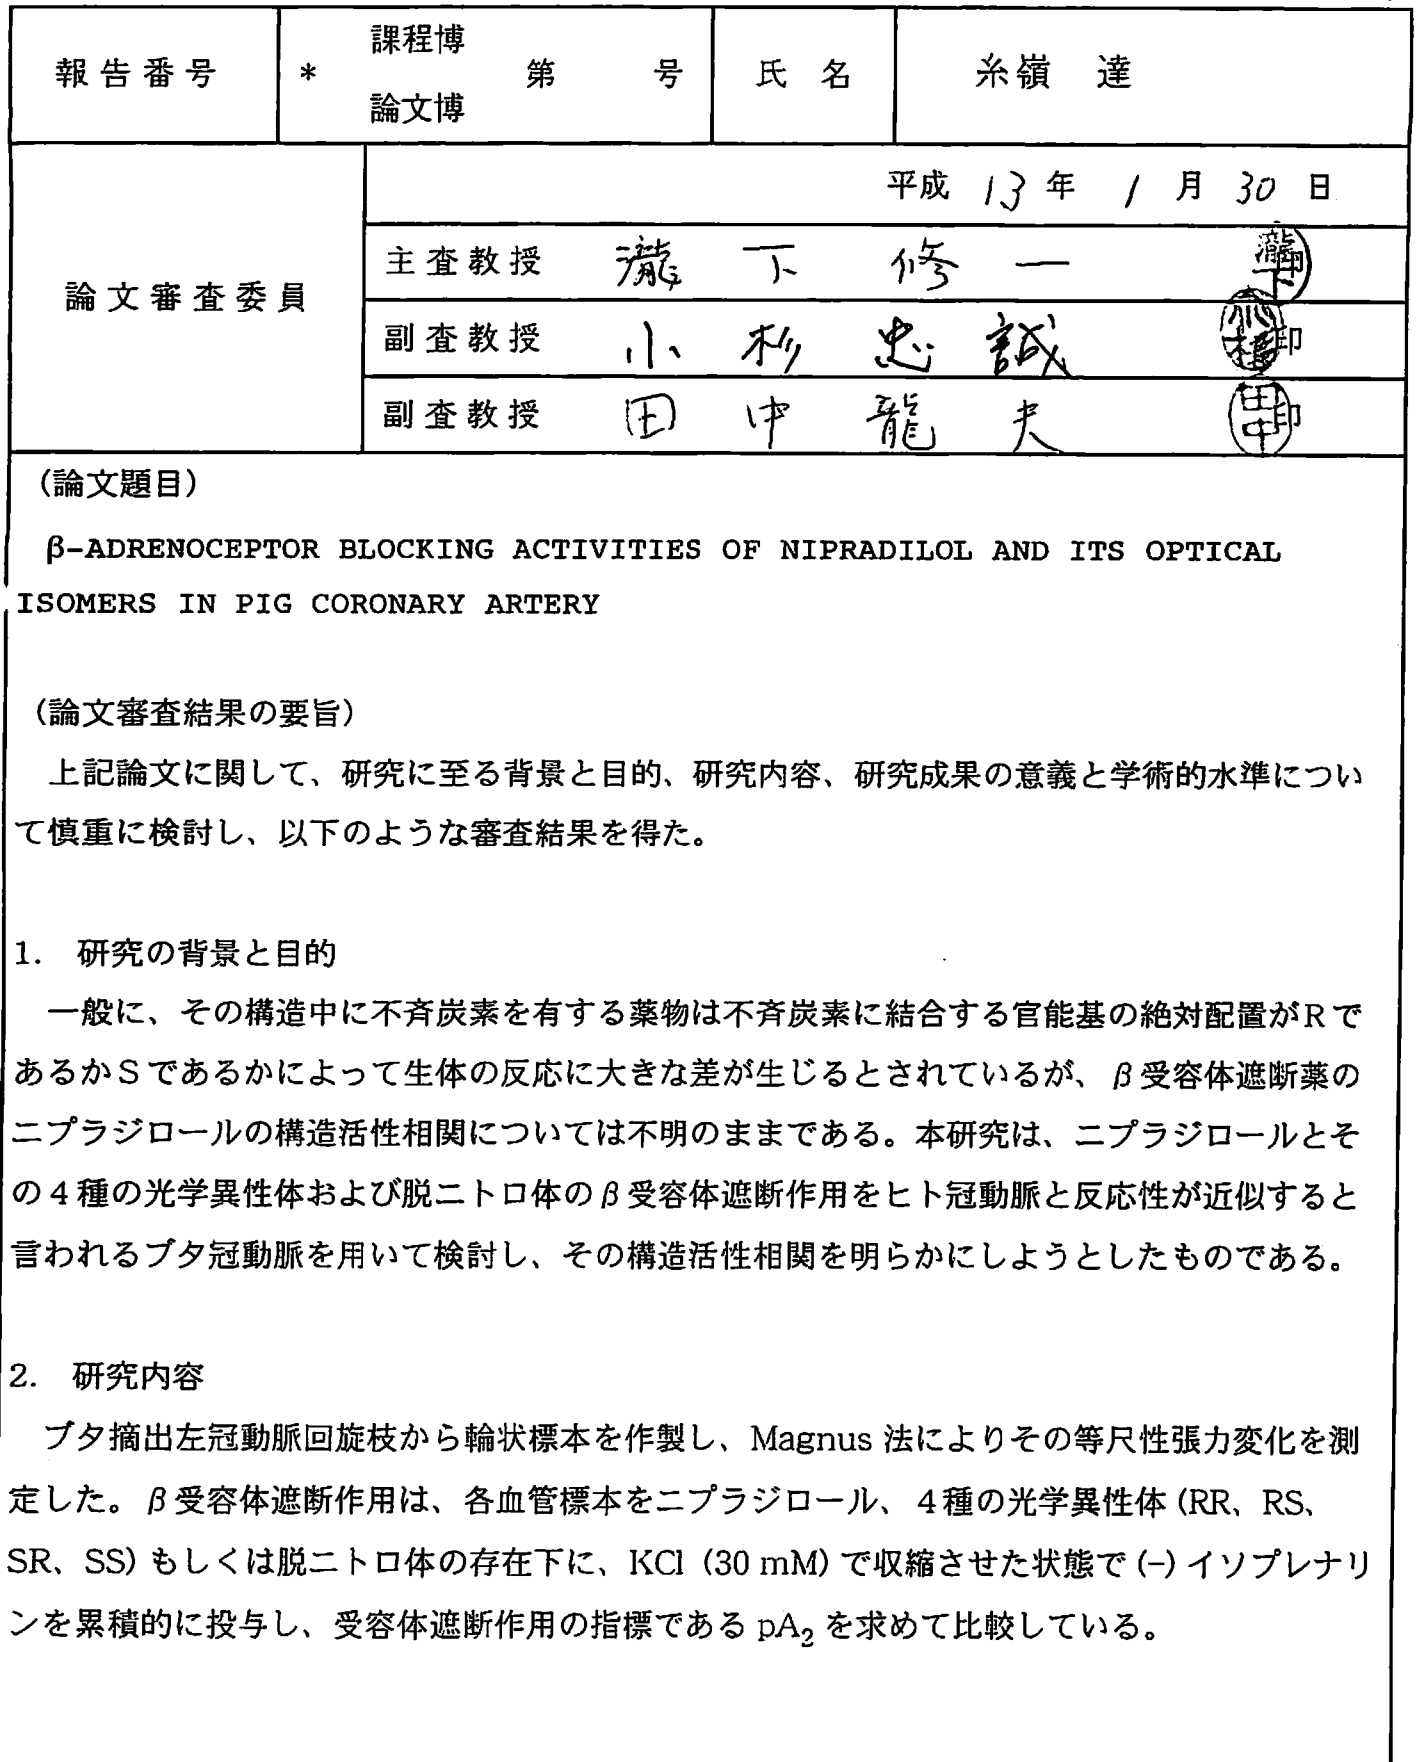 報告番号 * 課程博 論文博 第 号 氏名 糸嶺 達
論文審査委員
平成 13 年 1 月 30 日
主査教授 瀧下修一 印
副査教授 小杉忠誠 印
副査教授 田中龍夫 印
(論文題目)
β-ADRENOCEPTOR BLOCKING ACTIVITIES OF NIPRADILOL AND ITS OPTICAL
ISOMERS IN PIG CORONARY ARTERY
(論文審査結果の要旨)
上記論文に関して、研究に至る背景と目的、研究内容、研究成果の意義と学術的水準につい
て慎重に検討し、以下のような審査結果を得た。
1. 研究の背景と目的
一般に、その構造中に不斉炭素を有する薬物は不斉炭素に結合する官能基の絶対配置がRで
あるかSであるかによって生体の反応に大きな差が生じるとされているが、β受容体遮断薬の
ニプラジロールの構造活性相関については不明のままである。本研究は、ニプラジロールとそ
の4種の光学異性体および脱ニトロ体のβ受容体遮断作用をヒト冠動脈と反応性が近似すると
言われるブタ冠動脈を用いて検討し、その構造活性相関を明らかにしようとしたものである。
2. 研究内容
ブタ摘出左冠動脈回旋枝から輪状標本を作製し、Magnus 法によりその等尺性張力変化を測
定した。β受容体遮断作用は、各血管標本をニプラジロール、4種の光学異性体 (RR、RS、
SR、SS) もしくは脱ニトロ体の存在下に、KCl (30 mM) で収縮させた状態で (-) イソプレナリ
ンを累積的に投与し、受容体遮断作用の指標である pA₂ を求めて比較している。